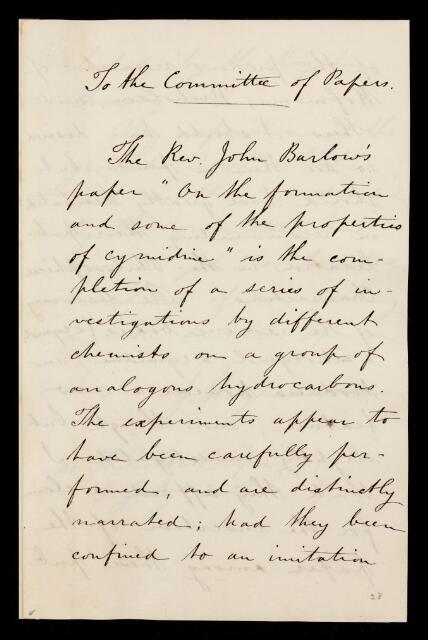 To the Committee of Papers.
The Rev. John Barlow's
paper "On the formation
and some of the properties
of cymidine" is the com-
pletion of a series of in-
vestigations by different
chemists on a group of
analogous hydrocarbons.
The experiments appear to
have been carefully per-
formed, and are distinctly
narrated; had they been
confined to an imitation
28